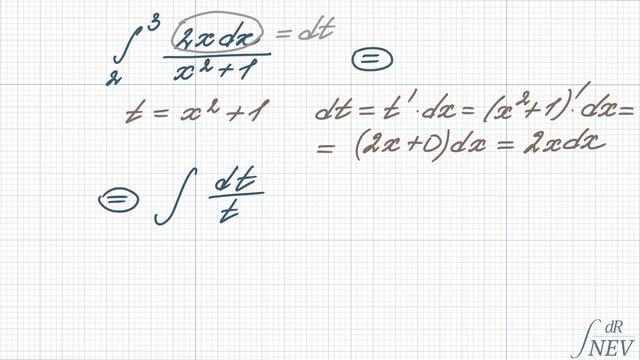 ∫₂³ 2x dx / (x² + 1) = dt ⊜
t = x² + 1 dt = t' · dx = (x² + 1)' · dx =
= (2x + 0) dx = 2x dx
⊜ ∫ dt / t
∫ dR
NEV